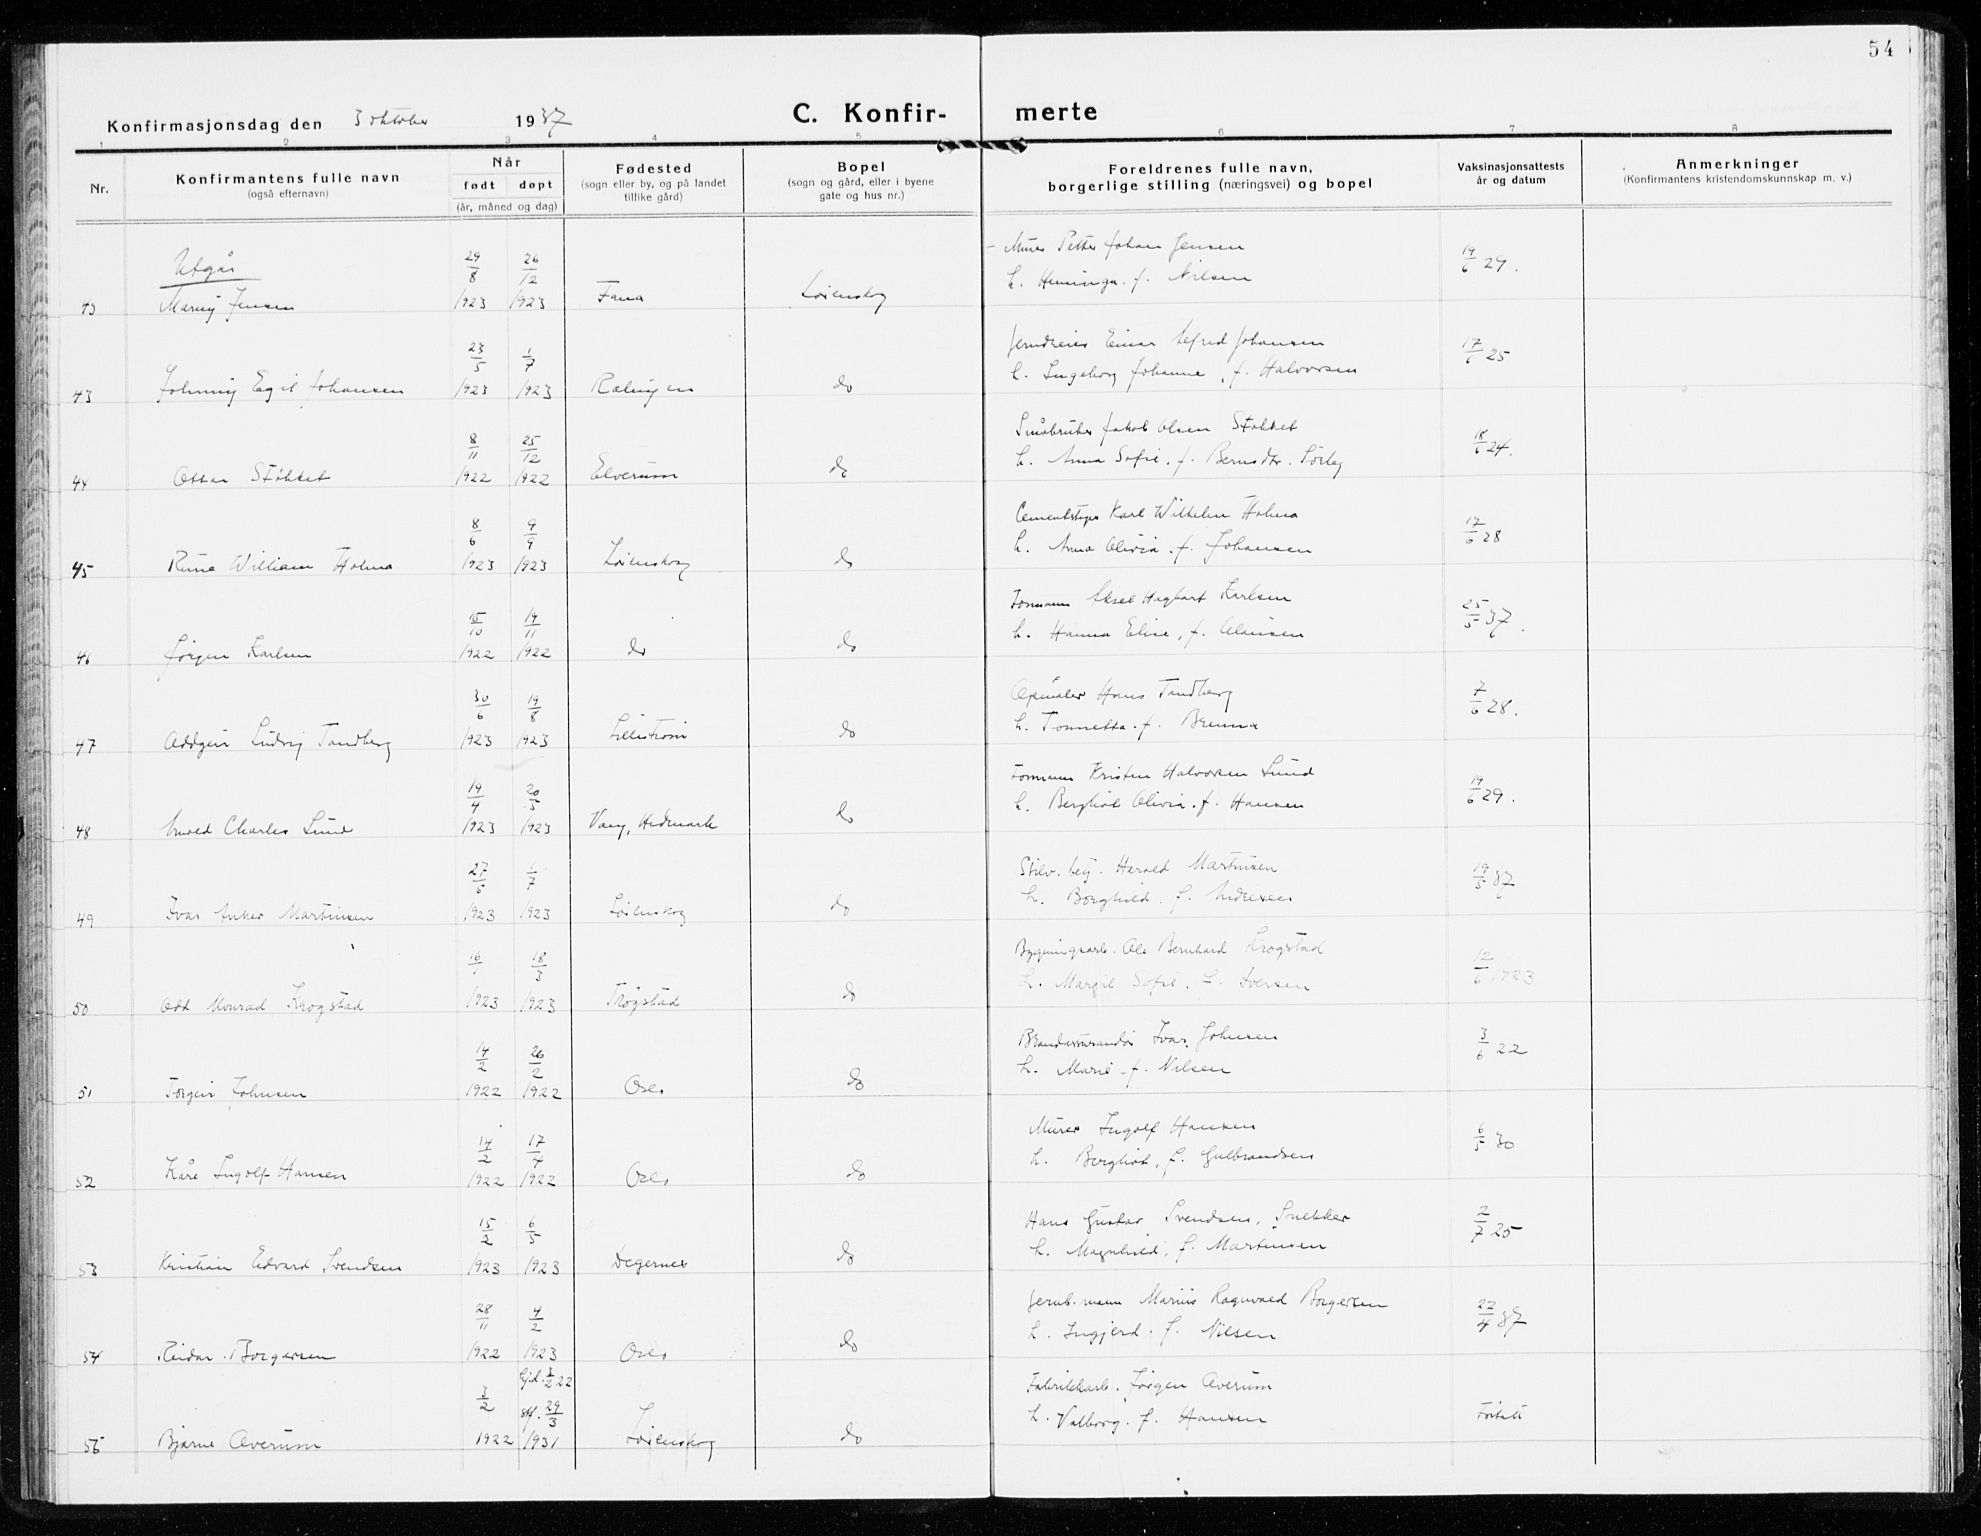 54
Konfirmasjonsdag den 3 oktober 1937
C. Konfir- merte
1 2 3 4 5 6 7 8
Nr.
Konfirmantens fulle navn
(også efternavn)
Når
født døpt
(år, måned og dag)
Fødested
(sogn eller by, og på landet
tillike gård)
Bopel
(sogn og gård, eller i byene
gate og hus nr.)
Foreldrenes fulle navn,
borgerlige stilling (næringsvei) og bopel
Vaksinasjonsattests
år og datum
Anmerkninger
(Konfirmantens kristendomskunnskap m. v.)
Utgår 29/8 26/12 Murer Petter Johan Jensen 19/6 29.
43 Marny Jensen 1923 1923 Fana Lørenskog h. f. Nilsen
23/5 1/7 Jerndreier Einar Alfred Johansen 17/6 25
43 Johnny Egil Johansen 1923 1923 Rælingen do h. Ingeborg Johanne, f. Halvorsen
8/11 25/12 Småbruker Jakob Olsen Støkket 18/6 24.
44 Ottar Støkket 1922 1922 Elverum do h. Anna Sofie. f. Berndtr. Sörby
8/6 9/9 Cementstøper Karl Wilhelm Holma 17/6 28
45 Rune William Holma 1923 1923 Lørenskog do h. Anna Olivia. f. Johansen
15/10 19/11 Formann Aksel Hagbart Karlsen 25/5 37.
46 Jørgen Karlsen 1922 1922 do do h. Hanna Elise, f. Olausen
30/6 19/8 Hans Tandberg 7/6 28.
47 Oddgeir Ludvig Tandberg 1923 1923 Lillestrøm do h. Tonnetta. f. Brenna
19/4 20/5 Formann Kristen Halvorsen Lund 19/6 29.
48 Arvid Charles Lund 1923 1923 Vang, Hedmark do h. Bergliot Olivia. f. Hansen
27/5 1/7 Stilv. betj. Harald Martinsen 19/5 37
49 Ivar Anker Martinsen 1923 1923 Lørenskog do h. Borghild. f. Andresen
16/1 18/3 Bygningsarb. Ole Bernhard Krogstad 12/6 1923
50 Odd Monrad Krogstad 1923 1923 Trøgstad do h. Margit Sofie. f. Iversen
14/2 26/2 Ivar Johnsen 3/6 22
51 Torgeir Johnsen 1922 1922 Oslo do h. Marie f. Nilsen
14/2 17/4 Murer Ingolf Hansen 6/5 30
52 Kåre Ingolf Hansen 1922 1922 Oslo do h. Bergliot, f. Gulbrandsen
15/2 6/5 Hans Gustav Svendsen, Snekker 2/7 25
53 Kristian Edvard Svendsen 1923 1923 Degernes do h. Magnhild, f. Martinsen
28/11 4/2 Jernb. mann Marius Ragnvald Borgersen 22/4 37
54 Reidar Borgersen 1922 1923 Oslo do h. Ingjerd. f. Nilsen
3/2 Hjd. 3/2 22 Fabrikkarb. Jørgen Averum
stf. 29/3 h. Valborg. f. Hansen
55 Bjarne Averum 1922 1931 Lørenskog do